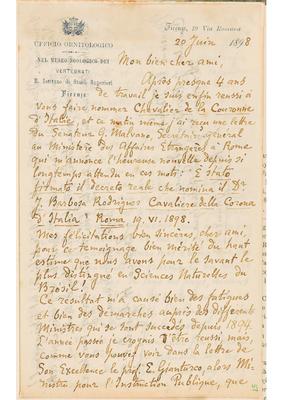 Firenze, 19 Via Romana
UFFICIO ORNITOLOGICO
NEL MUSEO ZOOLOGICO DEI
VERTEBRATI
R. Istituto di Studi Superiori
FIRENZE
20 Juin 1898
Mon bien cher ami,
Après presque 4 ans
de travail je suis enfin reussi à
vous faire nommer Chevalier de la Couronne
d'Italie, et ce matin même j'ai reçu une lettre
du Senateur G. Malvano, Secrétaire général
au Ministère des Affaires Etrangères à Rome
qui m'annonce l'heureuse nouvelle depuis si
longtemps attendu en ces mots: "È stato
firmato il decreto reale che nomina il Dr
J. Barbosa Rodrigues Cavaliere della Corona
d'Italia" Roma 19. VI. 1898.
Mes félicitations bien sincères, cher ami,
pour ce temoignage bien merité du haut
estime que nous avons pour le savant le
plus distingué en Sciences Naturelles du
Brésil!
Ce resultat m'a causé bien des fatigues
et bien des demarches auprès des differents
Ministres qui se sont succedés depuis 1894.
L'année passée je croyais d'être reussi mais
comme vous pouvez voir dans la lettre de
Son Excellence le prof. E. Gianturco, alors Mi-
nistre pour l'Instruction Publique, que